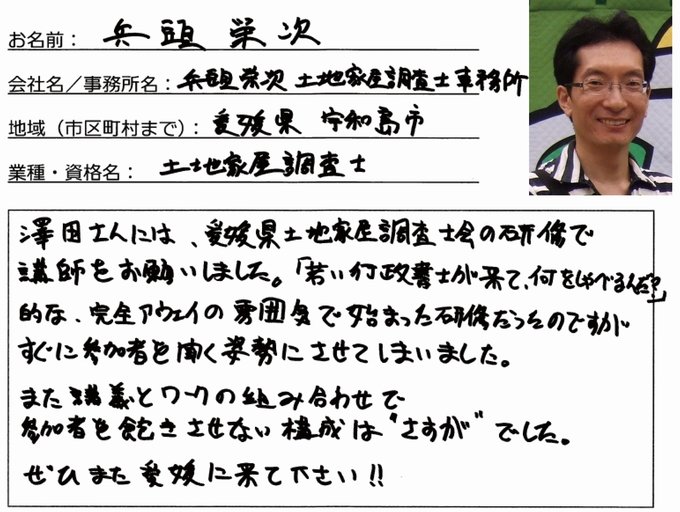 お名前： 兵頭 栄次
会社名／事務所名：兵頭栄次 土地家屋調査士事務所
地域（市区町村まで）： 愛媛県 宇和島市
業種・資格名： 土地家屋調査士
澤田さんには、愛媛県土地家屋調査士会の研修で
講師をお願いしました。「若い行政書士が来て、何をしゃべるんだ？」
的な、完全アウェイの雰囲気で始まった研修だったのですが
すぐに参加者を聞く姿勢にさせてしまいました。
また講義とワークの組み合わせで
参加者を飽きさせない構成は"さすが"でした。
ぜひまた愛媛に来て下さい!!